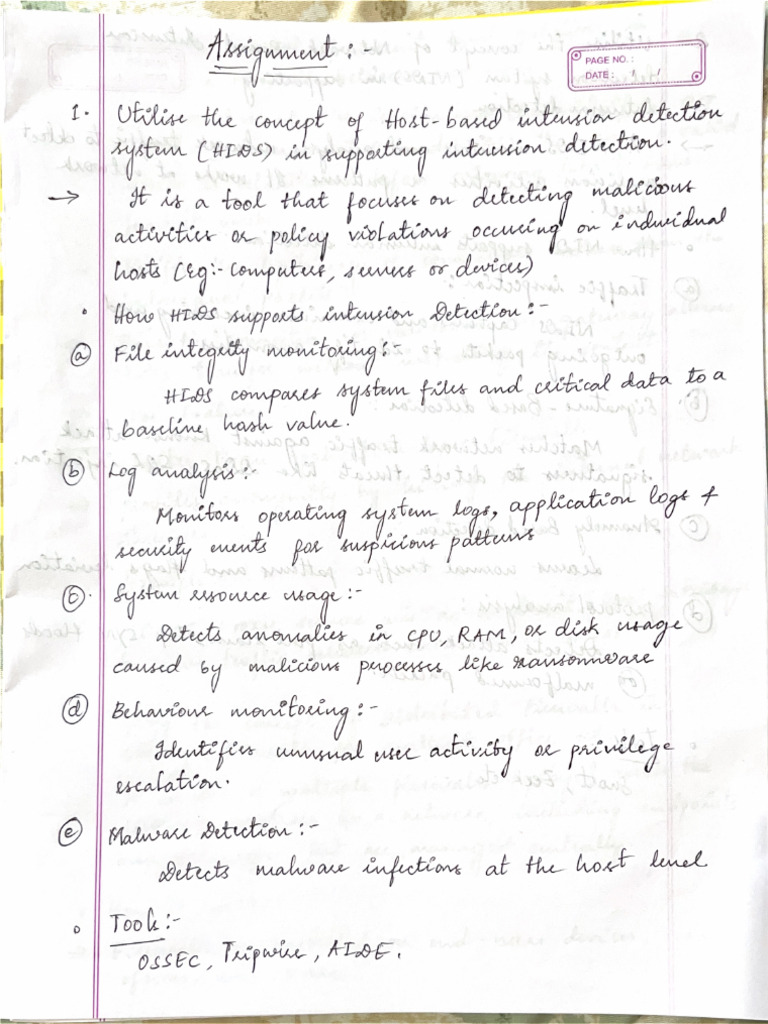 Assignment :-
PAGE NO. :
DATE :
1. Utilise the concept of Host-based intension detection
system (HIDS) in supporting intension detection.
→ It is a tool that focuses on detecting malicious
activities or policy violations occuring on individual
hosts (Eg:- Computers, servers or devices)
• How HIDS supports intension Detection :-
(a) File integrity monitoring:-
HIDS compares system files and critical data to a
baseline hash value.
(b) Log analysis:-
Monitors operating system logs, application logs &
security events for suspicious patterns
(c). System resource usage :-
Detects anomalies in CPU, RAM, or disk usage
caused by malicious processes like ransomware
(d) Behaviour monitoring :-
Identifies unusual user activity or privilege
escalation.
(e) Malware Detection :-
Detects malware infections at the host level
• Tools :-
OSSEC, Tripwire, AIDE.